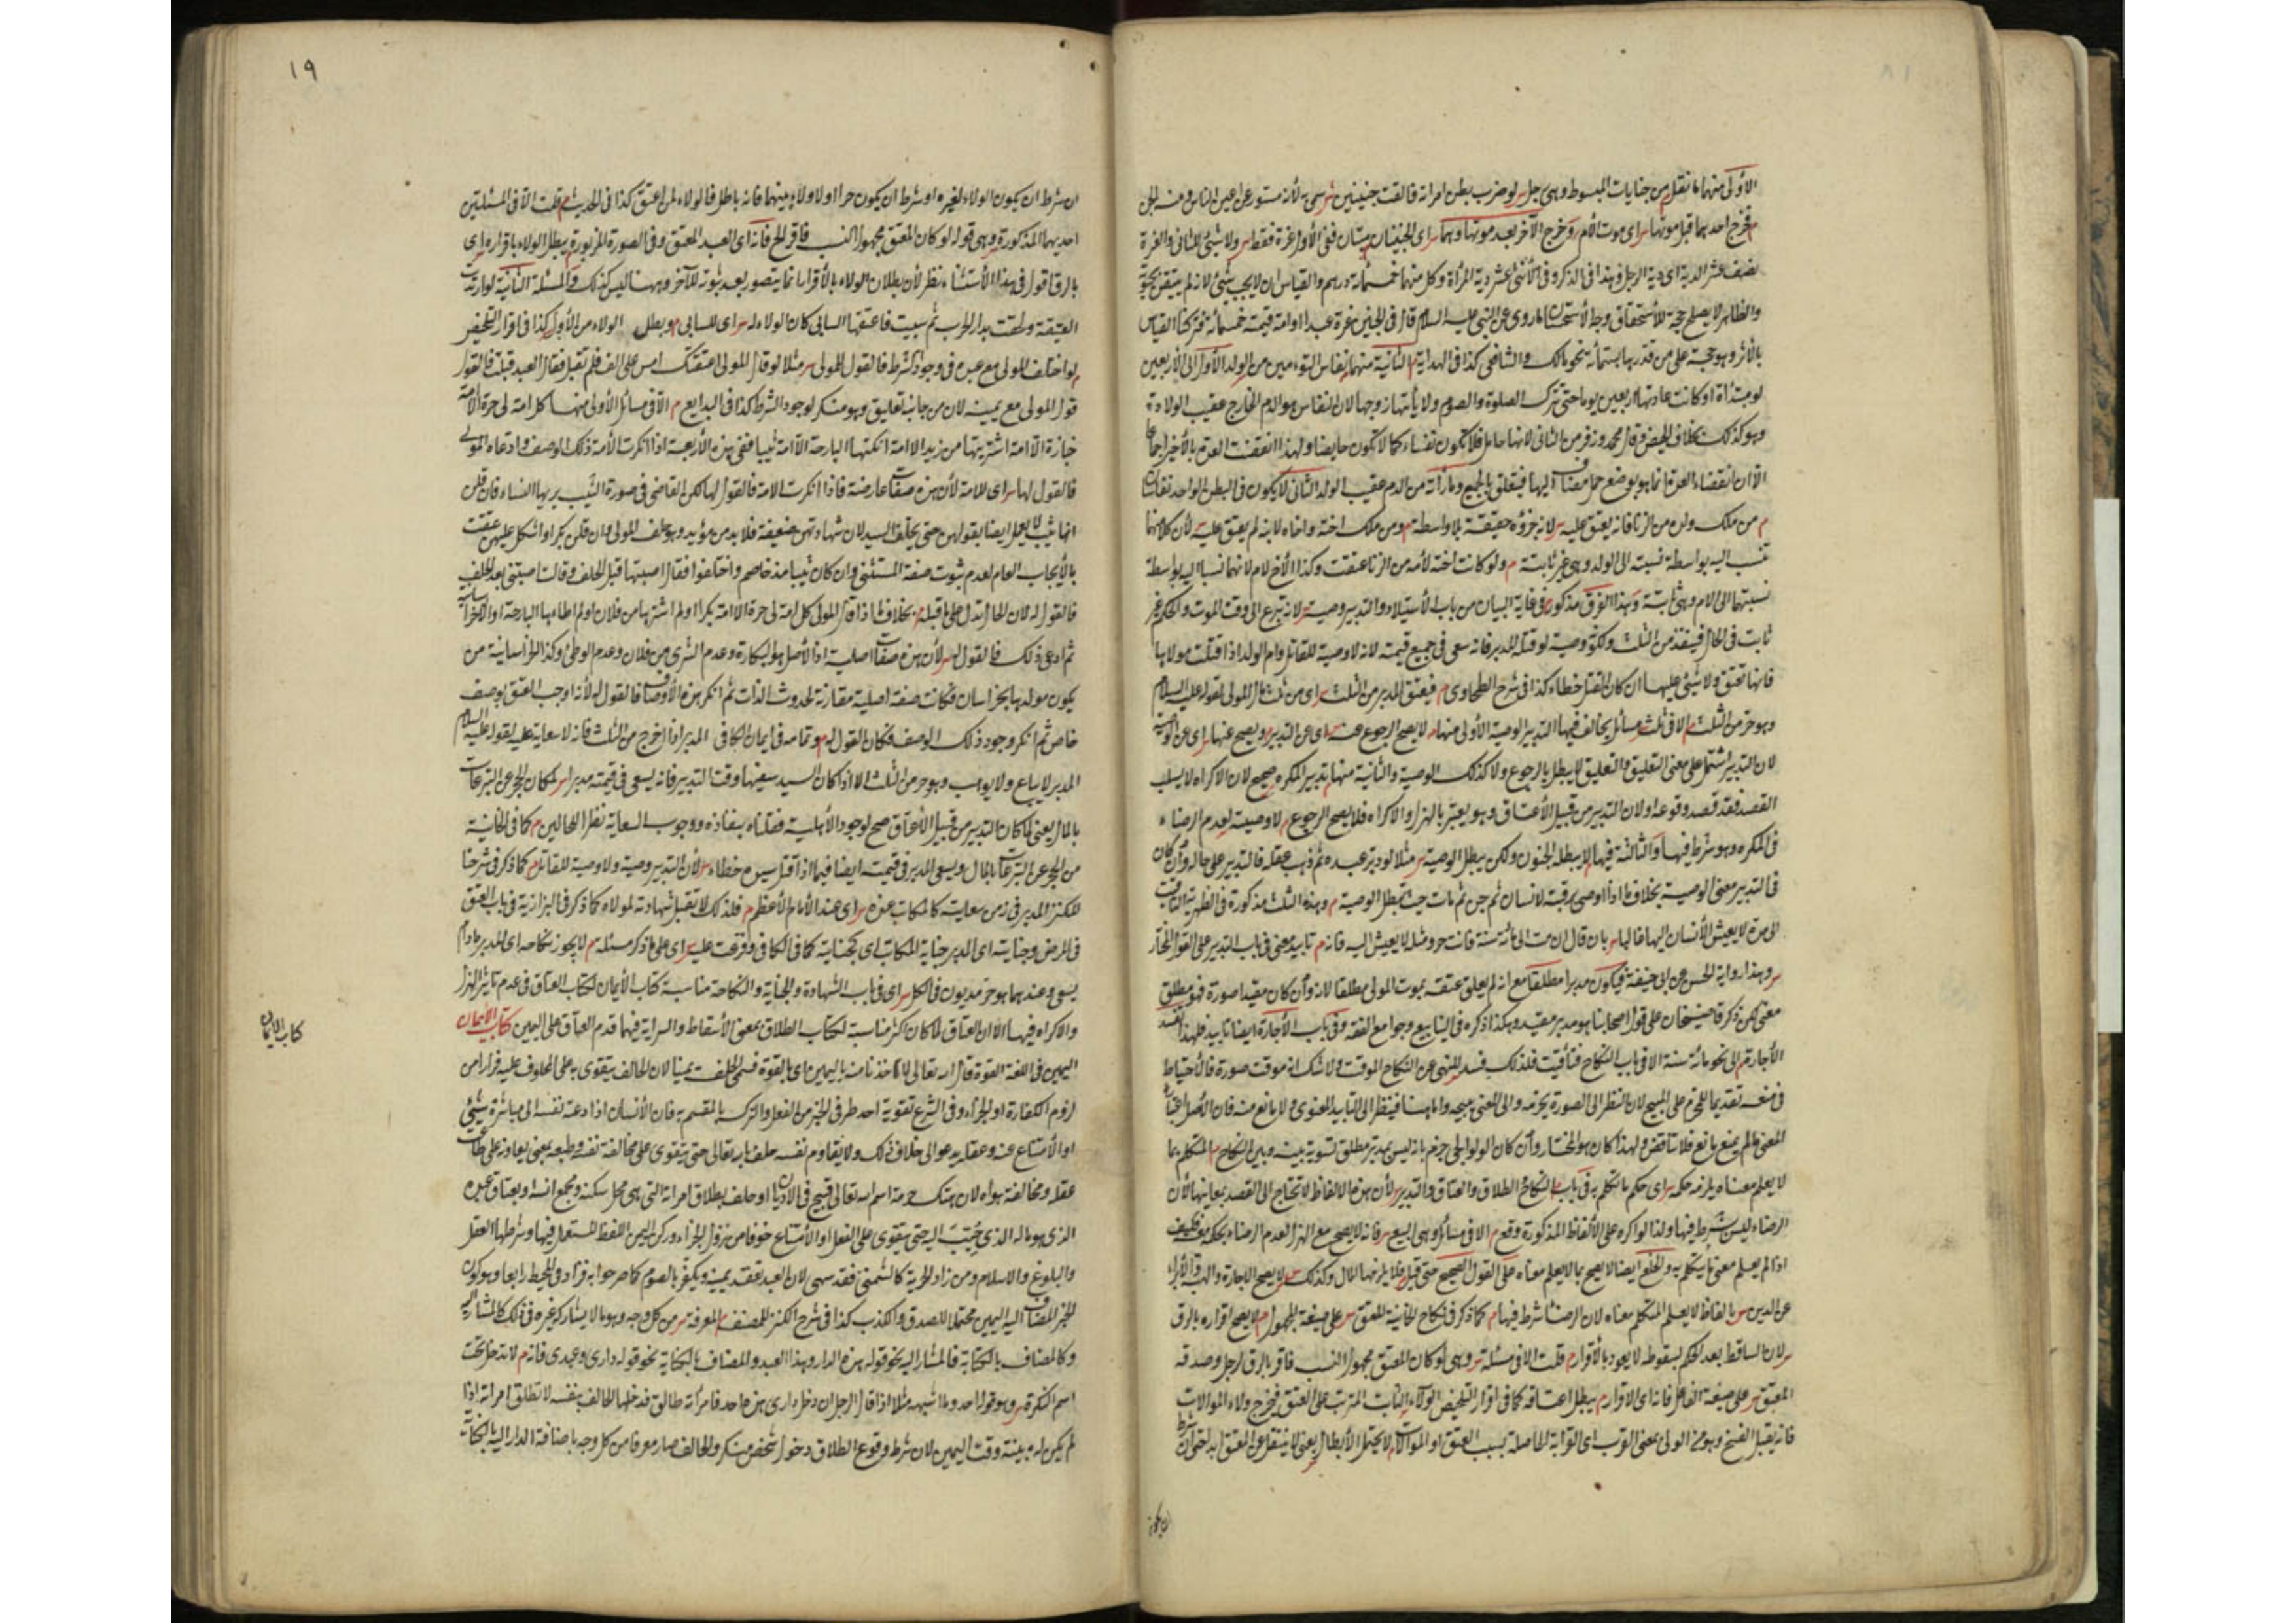 الأولى منهما ما نقل من جنايات المبسوط وهي رجل لو ضرب بطن امرأة فالقت جنينين
فخرج احدهما قبل موتها اى موت الأم وخرج الآخر بعد موتها وهما اى الجنينان ميتان ففى الأول غرة فقط ولا شئ للثانى والغرة
نصف عشر الدية اى دية الرجل وهذا فى الذكر وفى الأنثى عشر دية المرأة وكل منهما خمسمائة درهم والقياس ان لا يجب شئ لانه لم يتيقن بحيوته
والظاهر لا يصلح حجة للأستحقاق وجه الأستحسان ما روى عن النبى عليه السلام قال فى الجنين غرة عبد او امة قيمته خمسمائة فتركنا القياس
بالأثر وهو حجة على من قدرها بستمائة نحو مالك والشافعى كذا فى الهداية الثانية منهما نفاس التوءمين من الولد الأول الى الأربعين
لو مبتدأة او كانت عادتها اربعين يوما حتى تترك الصلوة والصوم ولا يأتيها زوجها لان النفاس هو الدم الخارج عقيب الولادة
وهو كذلك بخلاف الحيض وقال محمد وزفر من الثانى لانها حامل فلا تكون نفساء كما لا تكون حايضا ولهذا انقضت العدة بالأخير اجماعا
الا ان انقضاء العدة انما هو بوضع حمل مضاف اليها فيتعلق بالجميع وما رأته من الدم عقيب الولد الثانى لا يكون فى البطن الواحد نفاسان
من ملك ولده من الزنا فانه يعتق عليه لانه جزؤه حقيقة بلا واسطة ومن ملك اخته واخاه لابنه لم يعتق عليه لأن كلا منهما
تنسب اليه بواسطة نسبته الى الولد وهى غير ثابتة ولو كانت اخته لأمه من الزنا عتقت وكذا الأخ لام لانهما نسبا اليه بواسطة
نسبتهما الى الام وهى ثابتة وهذا الفرق مذكور فى غاية البيان من باب الأستيلاد والتدبير وصية لانه تبرع الى وقت الموت والحكم غير
ثابت فى الحال فينفذ من الثلث ولكونه وصية لو قتله المدبر فانه سعى فى جميع قيمته لانه لا وصية للقاتل وام الولد اذا قتلت مولاها
فانها تعتق ولا شئ عليها ان كان القتل خطاء كذا فى شرح الطحاوى فيعتق المدبر من الثلث اى من ثلث مال المولى لقوله عليه السلام
وهو حر من الثلث الا فى ثلث مسائل يخالف فيها التدبير الوصية الأولى منها لا يصح الرجوع عنه اى عن التدبير ويصح عنها اى عن الوصية
لان التدبير اشتمل على معنى التعليق والتعليق لا يبطل بالرجوع ولا كذلك الوصية والثانية منها تدبير المكره صحيح لان الاكراه لا يسلب
القصد فقد قصد وقوعه ولان التدبير من قبيل الأعتاق وهو يعتبر بالهزل والاكراه فلا يصح الرجوع لا وصيته لعدم الرضاء
فى المكره وهو شرط فيها والثالثة فيها لا يبطله الجنون ولكن يبطل الوصية مثلا لو دبر عبده ثم ذهب عقله فالتدبير على حاله وان كان
فى التدبير معنى الوصية بخلاف ما اذا اوصى برقبته لانسان ثم جن ثم مات حيث تبطل الوصية وهذه الثلث مذكورة فى الظهيرية التأقيت
الى مدة لا يعيش الأنسان اليها غالبا بان قال ان مت الى مائة سنة فانت حر ومثله لا يعيش اليه فانه تابيد معنى فى باب التدبير على القول المختار
وهذا رواية الحسن عن ابى حنيفة فيكون مدبرا مطلقا مع انه لم يعلق عتقه بموت المولى مطلقا لانه وان كان مقيدا صورة فهو مطلق
معنى لكن ذكر قاضيخان على قول اصحابنا هو مدبر مقيد وهكذا ذكره فى الينابيع وجوامع الفقه وفى باب الأجارة ايضا تابيد فلهذا تفسد
الأجارة الى نحو مائة سنة الا فى باب النكاح فتأقيت فلذلك فسد للنهى عن النكاح الموقت ولا شك انه موقت صورة فالأحتياط
فى منعه تقديما للمحرم على المبيح لان النظر الى الصورة يحرمه والى المعنى يبيحه واما هنا فينظر الى التابيد المعنوى ولا مانع منه فان الأصل اعتبار
المعنى ما لم يمنع مانع فلا تناقض ولهذا كان هو المختار وان كان الولوالجى جزم بانه ليس بمدبر مطلق تسوية بينه وبين النكاح المتكلم بما
لا يعلم معناه يلزمه حكمه اى حكم ما تكلم به فى باب النكاح الطلاق والعتاق والتدبير لأن هذه الالفاظ لا تحتاج الى القصد بمعانيها لأن
الرضاء ليس بشرط فيها ولذا لو اكره على الألفاظ المذكورة وقع الا فى مسائل وهى البيع فانه لا يصح مع الهزل لعدم الرضاء بحكمه فكيف
اذا لم يعلم معنى ما يتكلم به والخلع ايضا لا يصح بما لا يعلم معناه على القول الصحيح حتى قبل فلا يلزمها المال وكذلك لا يصح الاجارة والهبة والأبراء
عن الدين بالفاظ لا يعلم المتكلم معناه لان الرضا شرط فيها كما ذكر فى نكاح الخانية المعتق على صيغة المجهول لا يصح اقراره بالرق
لان الساقط بعد الحكم بسقوطه لا يعود بالأقرار قلت الا فى مسئلة وهى لو كان المعتق مجهول النسب فاقر بالرق لرجل وصدقه
المعتق على صيغة الفاعل فانه اى الاقرار يبطل اعتاقه كما فى اقرار التلخيص الولاء الثابت المترتب على العتق فيخرج ولاء الموالات
فانه يقبل الفسخ وهو من الولى بمعنى القرب اى القرابة الحاصلة بسبب العتق او الموالات لا يحتمل الأبطال يعنى لا ينتقل عن المعتق ابدا حتى ان شرط
ان يكون
١٩
ان شرط ان يكون الولاء لغيره او شرط ان يكون حرا ولا ولاء بينهما فانه باطل فالولاء لمن اعتق كذا فى الحديث قلت الا فى المسئلتين
احديهما المذكورة وهى قوله لو كان المعتق مجهول النسب فاقر الخ فانه اى العبد المعتق وفى الصورة المزبورة يبطل الولاء باقراره اى
بالرق اقول فى هذا الأستثناء نظر لأن بطلان الولاء بالأقرار انما يتصور بعد ثبوته للآخر وههنا ليس كذلك والمسئلة الثانية لو ارتدت
العتيقة ولحقت بدار الحرب ثم سبيت فاعتقها السابى كان الولاء له اى للسابى وبطل الولاء من الأول كذا فى اقرار التلخيص
لو اختلف المولى مع عبده فى وجود الشرط فالقول للمولى مثلا لو قال المولى اعتقتك امس على الف فلم تقبل فقال العبد قبلت فالقول
قول المولى مع يمينه لان من جانبه تعليق وهو منكر لوجود الشرط كذا فى البدايع الا فى مسائل الأولى منها كل امة لى حرة الا امة
خبازة الا امة اشتريتها من زيد الا امة انكحتها البارحة الا امة ثيبا ففى هذه الأربعة اذا انكرت الأمة ذلك الوصف وادعاه المولى
فالقول لها اى للامة لأن هذه صفات عارضة فاذا انكرت الامة فالقول لها لكن القاضى فى صورة الثيب يريها النساء فان قلن
انها ثيب لا يعمل ايضا بقولهن حتى يحلف السيد لان شهادتهن ضعيفة فلا بد من مؤيد وهو حلف المولى وان قلن بكر او اشكل عليهن عتقت
بالأيجاب العام لعدم ثبوت صفة المستثنى وان كان ثيبا مذ خاصم واختلفوا فقال اصبتها قبل الحلف وقالت اصبتنى بعد الحلف
فالقول له لان الحال تدل على ما قبله بخلاف ما اذا قال المولى كل امة لى حرة الا امة بكرا او لم اشترها من فلان او لم اطأها البارحة او الا خراسانية
ثم ادعى ذلك فالقول له لأن هذه صفات اصلية اذ الأصل هو البكارة وعدم الشرى من فلان وعدم الوطئ وكذا الخراسانية من
يكون مولدها بخراسان فكانت صفة اصلية مقارنة لحدوث الذات ثم انكر هذه الأوصاف فالقول له لأنه اوجب العتق بوصف
خاص ثم انكر وجود ذلك الوصف فكان القول له وتمامه فى ايمان الكافى المدبر اذا خرج من الثلث فانه لا سعاية عليه لقوله عليه السلام
المدبر لا يباع ولا يوهب وهو حر من الثلث الا اذا كان السيد سفيها وقت التدبير فانه يسعى فى قيمته مدبرا لمكان الحجر عن التبرعات
بالمال يعنى لما كان التدبير من قبيل الأعتاق صح لوجود الأهلية فقلناه بنفاذه ووجوب السعاية نظرا للحالين كما فى الخانية
من الحجر عن التبرعات بالمال ويسعى المدبر فى قيمته ايضا فيما اذا قتل سيده خطاء لأن التدبير وصية ولا وصية للقاتل كما ذكر فى شرحنا
للكنز المدبر فى زمن سعايته كالمكاتب عنده اى عند الأمام الأعظم فلذلك لا تقبل شهادته لمولاه كما ذكر فى البزازية فى باب العتق
فى المرض وجنايته اى المدبر جناية المكاتب اى كجنايته كما فى الكافى وفرعت عليه اى على ما ذكر مسئلة لا يجوز نكاحه اى المدبر ما دام
يسعى وعندهما هو حر مديون فى الكل اى فى باب الشهادة والجناية والنكاح مناسبة كتاب الأيمان لكتاب العتاق فى عدم تأثير الهزل
والاكراه فيها الا ان العتاق لما كان اكثر مناسبة لكتاب الطلاق بمعنى الأسقاط والسراية فيهما قدم العتاق على اليمين كتاب الايمان
كتاب الايمان
اليمين فى اللغة القوة قال الله تعالى لاخذنا منه باليمين اى بالقوة فسمى الحلف يمينا لان الحالف يتقوى به على المحلوف عليه فرارا من
لزوم الكفارة او الجزاء وفى الشرع تقوية احد طرفى الخبر من الفعل والترك بالمقسم به فان الأنسان اذا دعته نفسه الى مباشرة شئ
او الأمتناع عنه وعقله يدعو الى خلاف ذلك ولا يقاوم نفسه حلف بالله تعالى حتى يتقوى على مخالفة نفسه وطبعه بمعنى يعاونه على
عقله ومخالفة هواه لان هتك حرمة اسم الله تعالى قبيح فى الاديان او حلف بطلاق امرأته التى هى محل سكنه ومجمع انسه او بعتاق عبده
الذى هو ماله الذى حُبِّب اليه حتى يتقوى على الفعل او الأمتناع خوفا من نزول الجزاء وركن اليمين اللفظ المستعمل فيها وشرطها العقل
والبلوغ والاسلام ومن زاد الحرية كالشمنى فقد سهى لان العبد ينعقد يمينه ويكفر بالصوم كما صرحوا به وزاد فى المحيط رابعا وهو كون
الخبر المضاف اليه اليمين محتملا للصدق والكذب كذا فى شرح الكنز للمصنف المعرفة من كل وجه وهو ما لا يشاركه غيره فى ذلك كالمشار اليه
وكالمضاف بالكناية فالمشار اليه نحو قوله هذه الدار وهذا العبد والمضاف بالكناية نحو قوله دارى وعبدى فانه لا تدخل تحت
اسم النكرة وهو قوله احد وما اشبهه مثلا اذا قال الرجل ان دخل دارى هذه احد فامرأته طالق فدخلها الحالف بنفسه لا تطلق امرأته اذا
لم يكن له بينة وقت اليمين لان شرط وقوع الطلاق دخول شخص منكر والحالف صار معرفا من كل وجه باضافة الدار اليه بالكناية